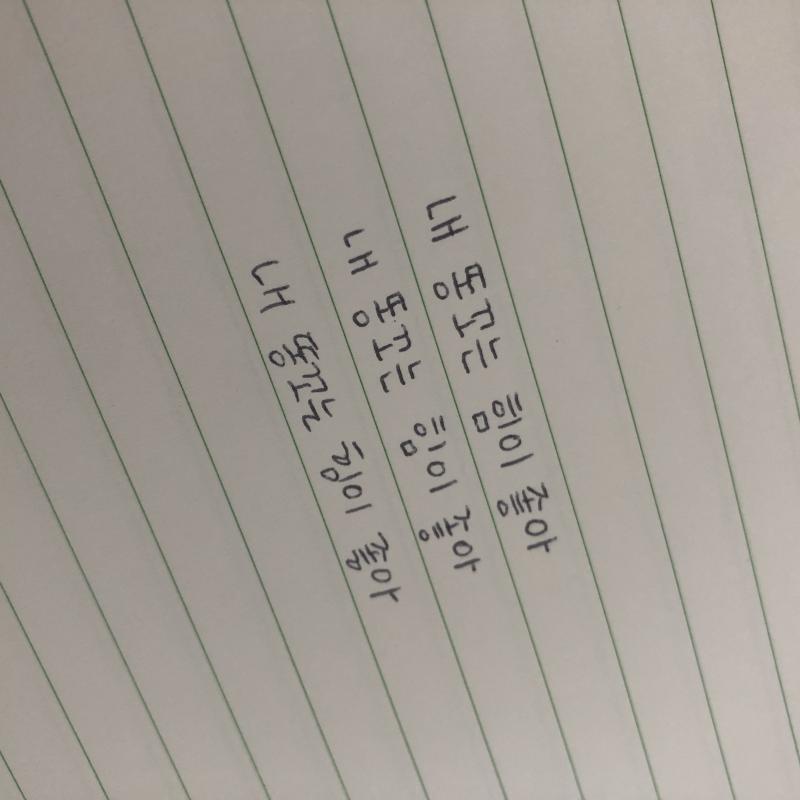 내 똥꼬는 힘이 좋아
내 똥꼬는 힘이 좋아
내 똥꼬는 힘이 좋아